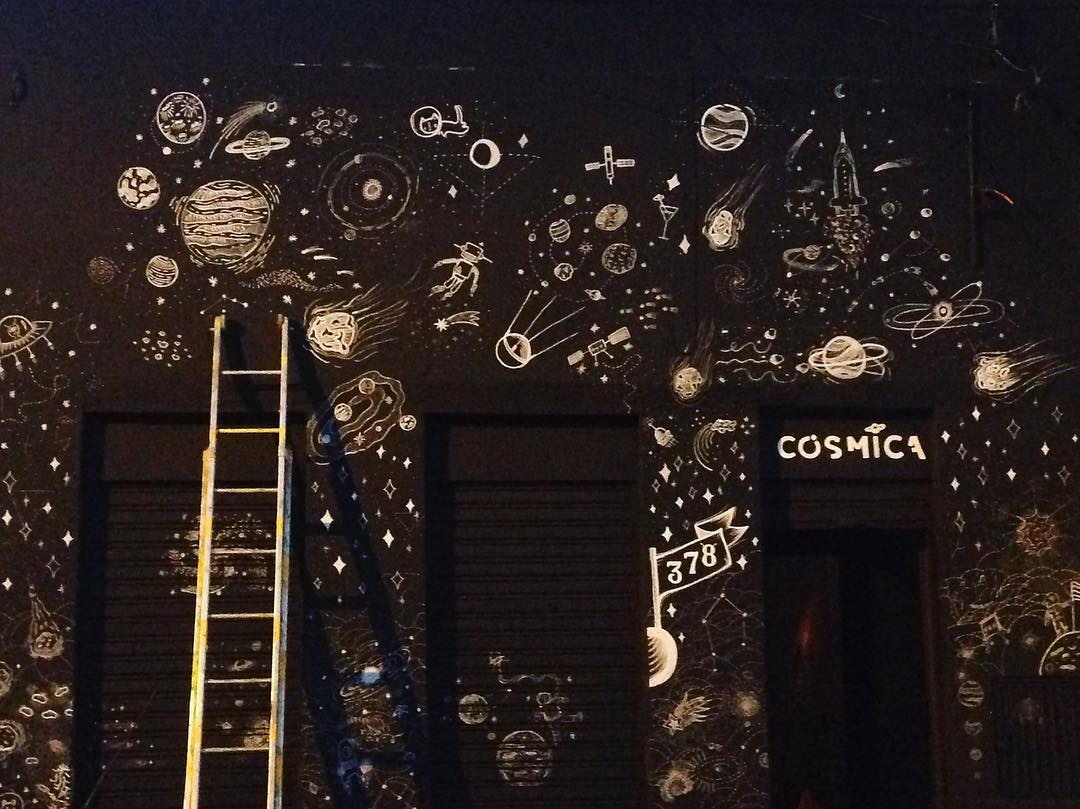 COSMICA
378